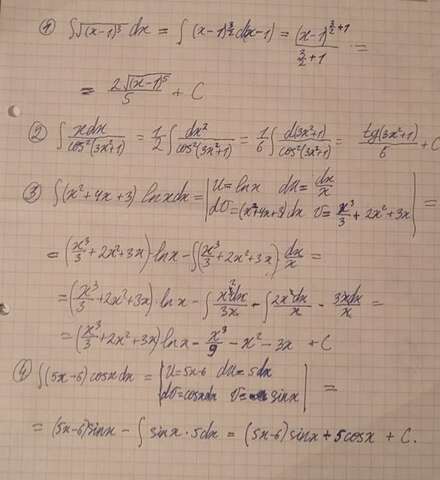 1) ∫√(x-1)³ dx = ∫ (x-1)^(3/2) d(x-1) = (x-1)^(3/2+1) / (3/2+1) =
= 2√(x-1)⁵ / 5 + C
2) ∫ xdx / cos²(3x²+1) = 1/2 ∫ dx² / cos²(3x²+1) = 1/6 ∫ d(3x²+1) / cos²(3x²+1) = tg(3x²+1) / 6 + C
3) ∫(x²+4x+3) lnxdx = | U = lnx dU = dx/x
dV = (x²+4x+3)dx V = x³/3 + 2x² + 3x | =
= (x³/3 + 2x² + 3x) · lnx - ∫(x³/3 + 2x² + 3x) dx/x =
= (x³/3 + 2x² + 3x) lnx - ∫ x³dx / 3x - ∫ 2x²dx / x - 3xdx / x =
= (x³/3 + 2x² + 3x) lnx - x³/9 - x² - 3x + C
4) ∫(5x-6) cosxdx = | U = 5x-6 dU = 5dx
dV = cosxdx V = sinx | =
= (5x-6)sinx - ∫ sinx · 5dx = (5x-6) sinx + 5cosx + C.